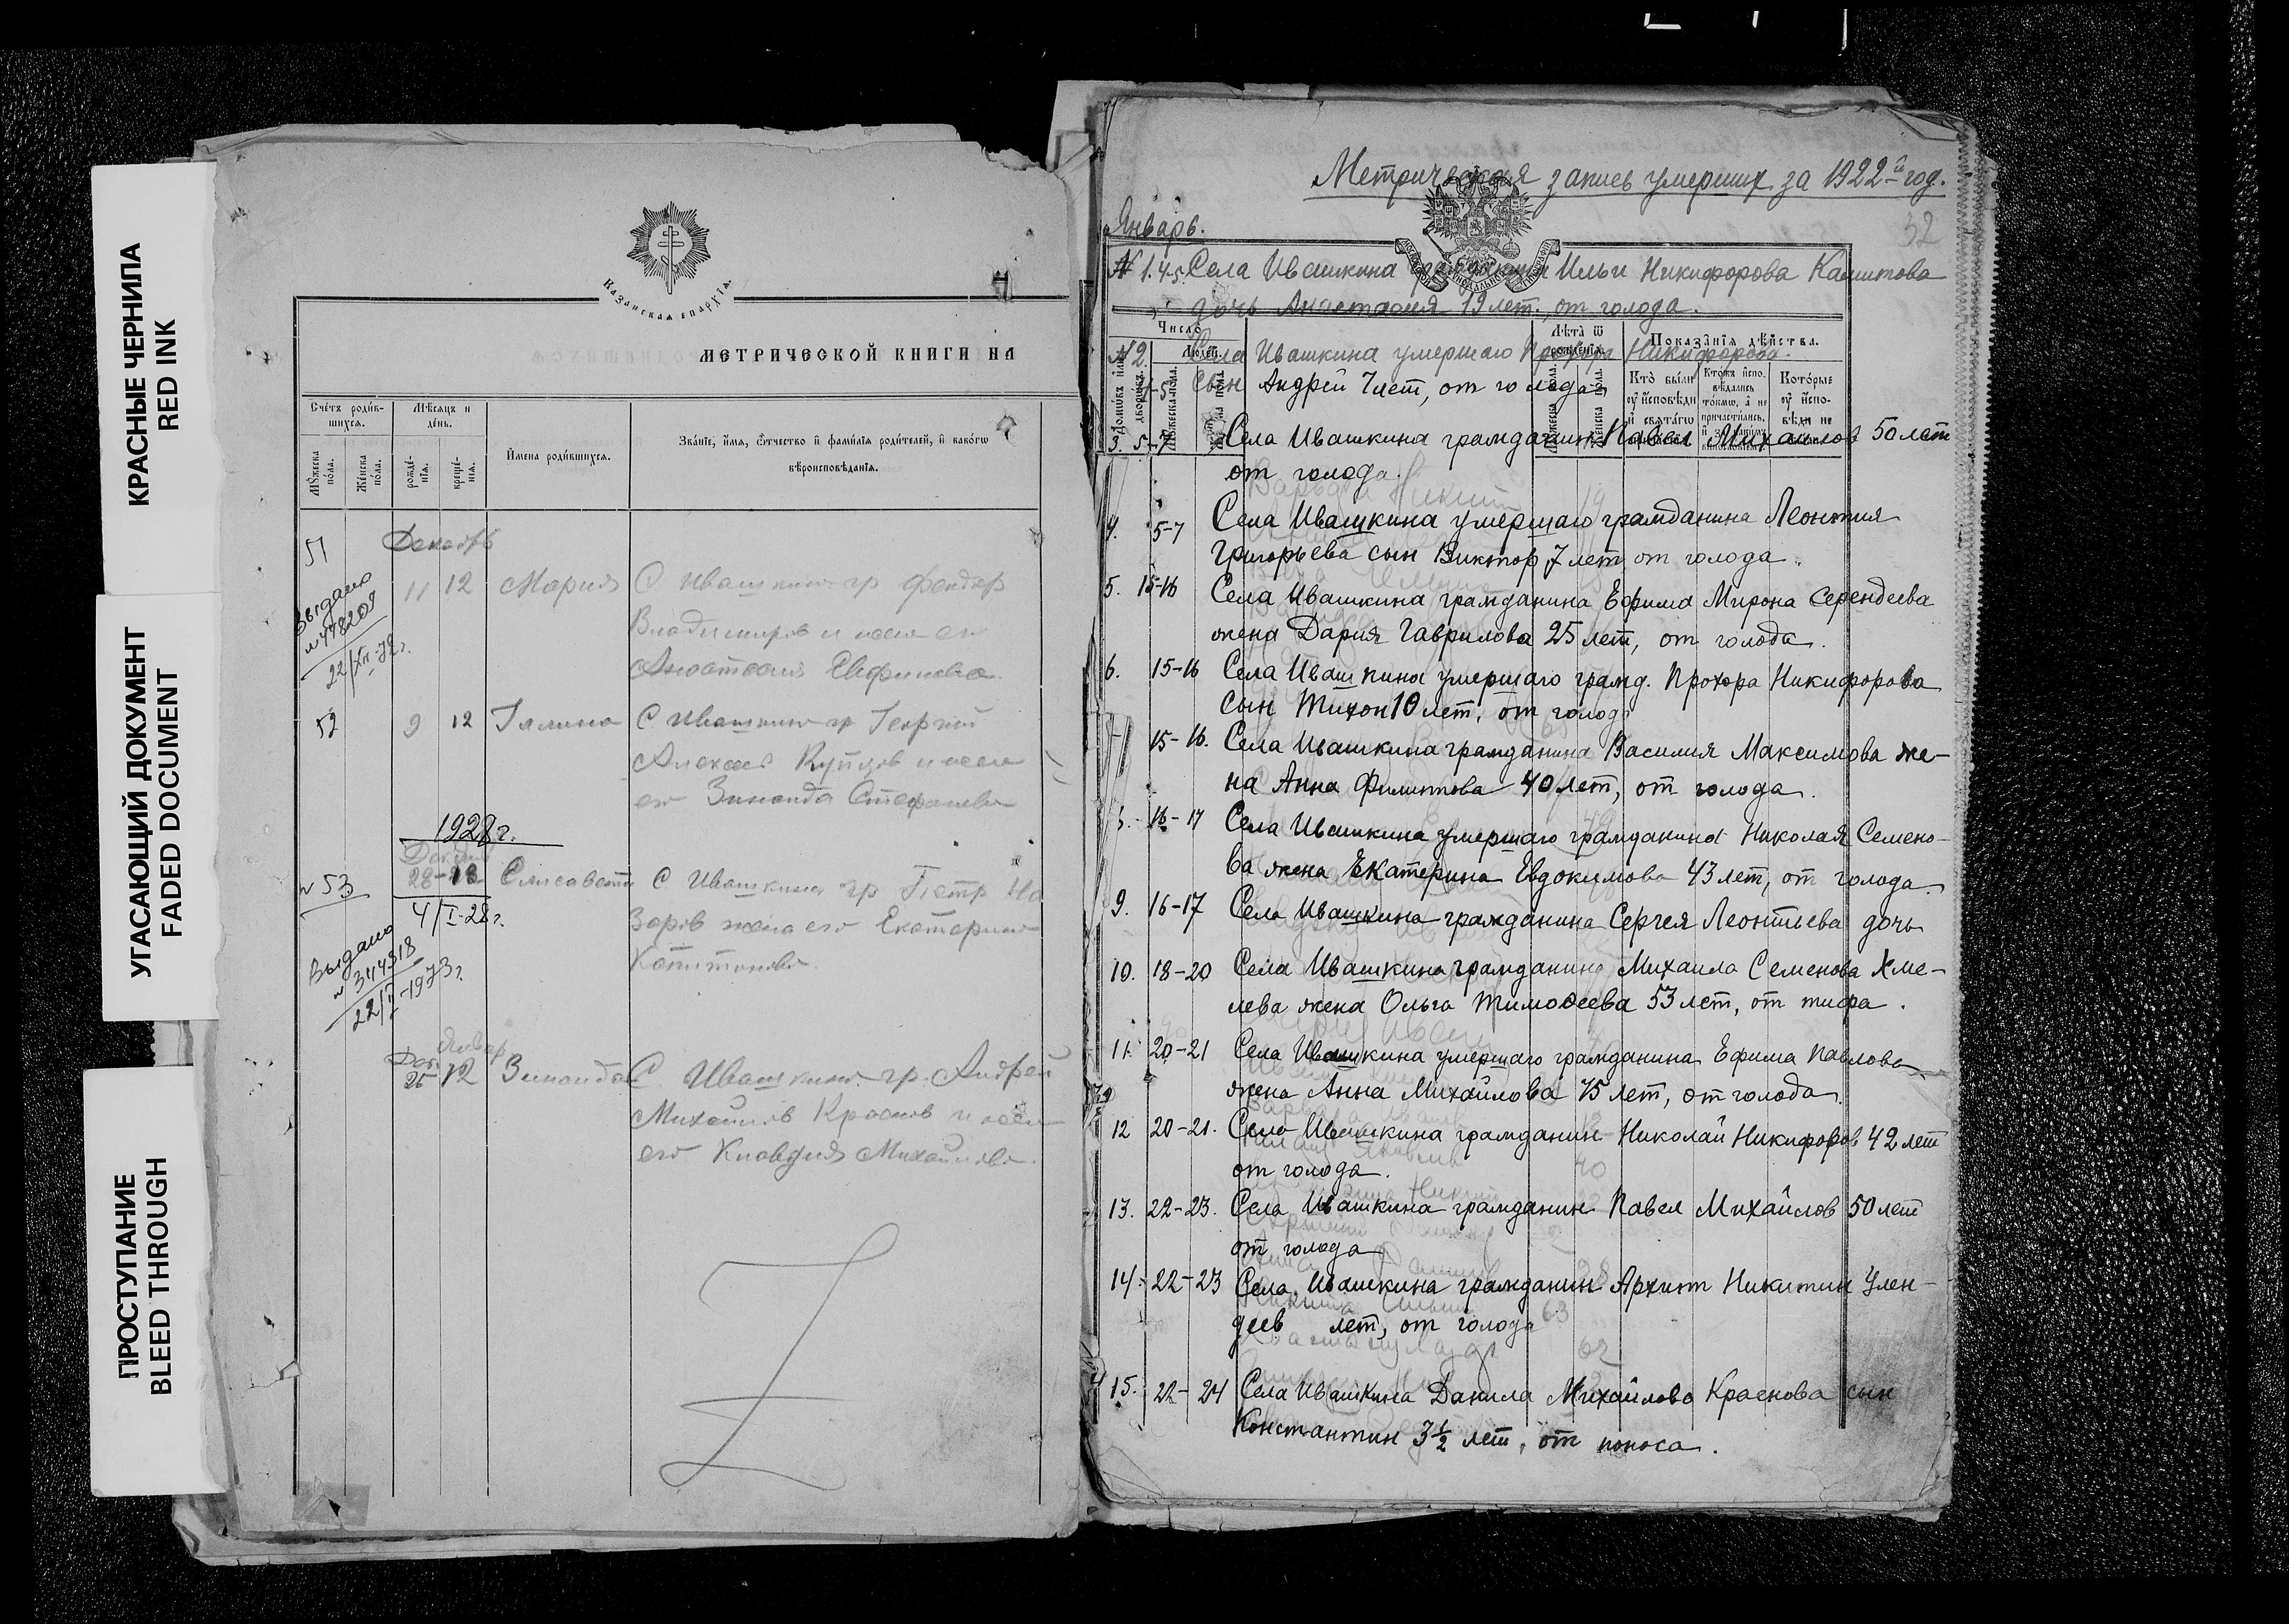 КРАСНЫЕ ЧЕРНИЛА
RED INK
УГАСАЮЩИЙ ДОКУМЕНТ
FADED DOCUMENT
ПРОСТУПАНИЕ
BLEED THROUGH
Казанская епархія.
МЕТРИЧЕСКОЙ КНИГИ НА
Счетъ родив-
шихся.
Мѣсяцъ и
день.
Мужеска
пола.
Женска
пола.
рожде-
нія.
креще-
нія.
Имена родившихся.
Званіе, имя, отчество и фамилія родителей, и какогѡ
вѣроисповѣданія.
51
Декабрь
11 12 Мария С Ивашкино гр Феодор
Владимиров и жена ег
Анастасия Евфимова
Выдано
№ 478209
22/XII-72г.
52 9 12 Галина С Ивашкино гр Георгий
Алексеев Купцов и жена
его Зинаида Стефанова
1928г.
№ 53 28-12 Елисавета С Ивашкино гр Петр На
4/I-28г. заров жена его Екатерина
Капитонова
Выдано
№ 344918
22/I-1973г.
Январ
Дек. 25-12 Зинаида С Ивашкино гр. Андрей
Михайлов Краснов и жен
его Клавдия Михайлова.
Метрическая запись умерших за 1922-й год.
32
Январь.
№ 1. 4-5. Села Ивашкина гражданина Ильи Никифорова Капитова
дочь Анастасия 19 лет, от голода.
Число
Людей.
Лѣта ѿ
рожденія.
Показанія дѣйства.
№ 2. Села Ивашкина умершаго Прохора Никифорова
4-5 сын Андрей 7 лет, от голода
Кто были
Которые
3. 5-7 Села Ивашкина гражданин Павел Михайлов 50 лет
от голода.
4. 5-7 Села Ивашкина умершаго гражданина Леонтия
Григорьева сын Виктор 7 лет, от голода.
5. 15-16 Села Ивашкина гражданина Ефима Мирона Серендеева
жена Дария Гаврилова 25 лет, от голода.
6. 15-16 Села Ивашкина умершаго гражд. Прохора Никифорова
сын Тихон 10 лет, от голода
15-16. Села Ивашкина гражданина Василия Максимова же-
на Анна Филиппова 40 лет, от голода.
8. 16-17 Села Ивашкина умершаго гражданина Николая Семено-
ва жена Екатерина Евдокимова 43 лет, от голода.
9. 16-17 Села Ивашкина гражданина Сергея Леонтьева дочь
10. 18-20 Села Ивашкина гражданина Михаила Семенова Хме-
лева жена Ольга Тимофеева 53 лет, от тифа.
11. 20-21 Села Ивашкина умершаго гражданина Ефима Павлова
жена Анна Михайлова 75 лет, от голода.
12 20-21. Села Ивашкина гражданин Николай Никифоров 42 лет
от голода.
13. 22-23. Села Ивашкина гражданин Павел Михайлов 50 лет
от голода
14. 22-23 Села Ивашкина гражданин Архип Никитин Улен-
деев лет, от голода
15. 22-24 Села Ивашкина Данила Михайлова Краснова сын
Константин 3½ лет, от поноса.